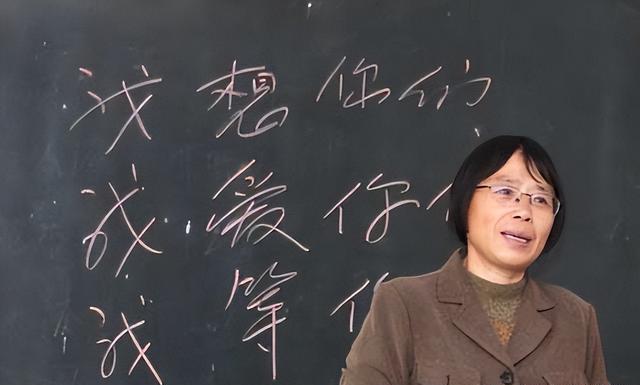 我想你们
我爱你
我等